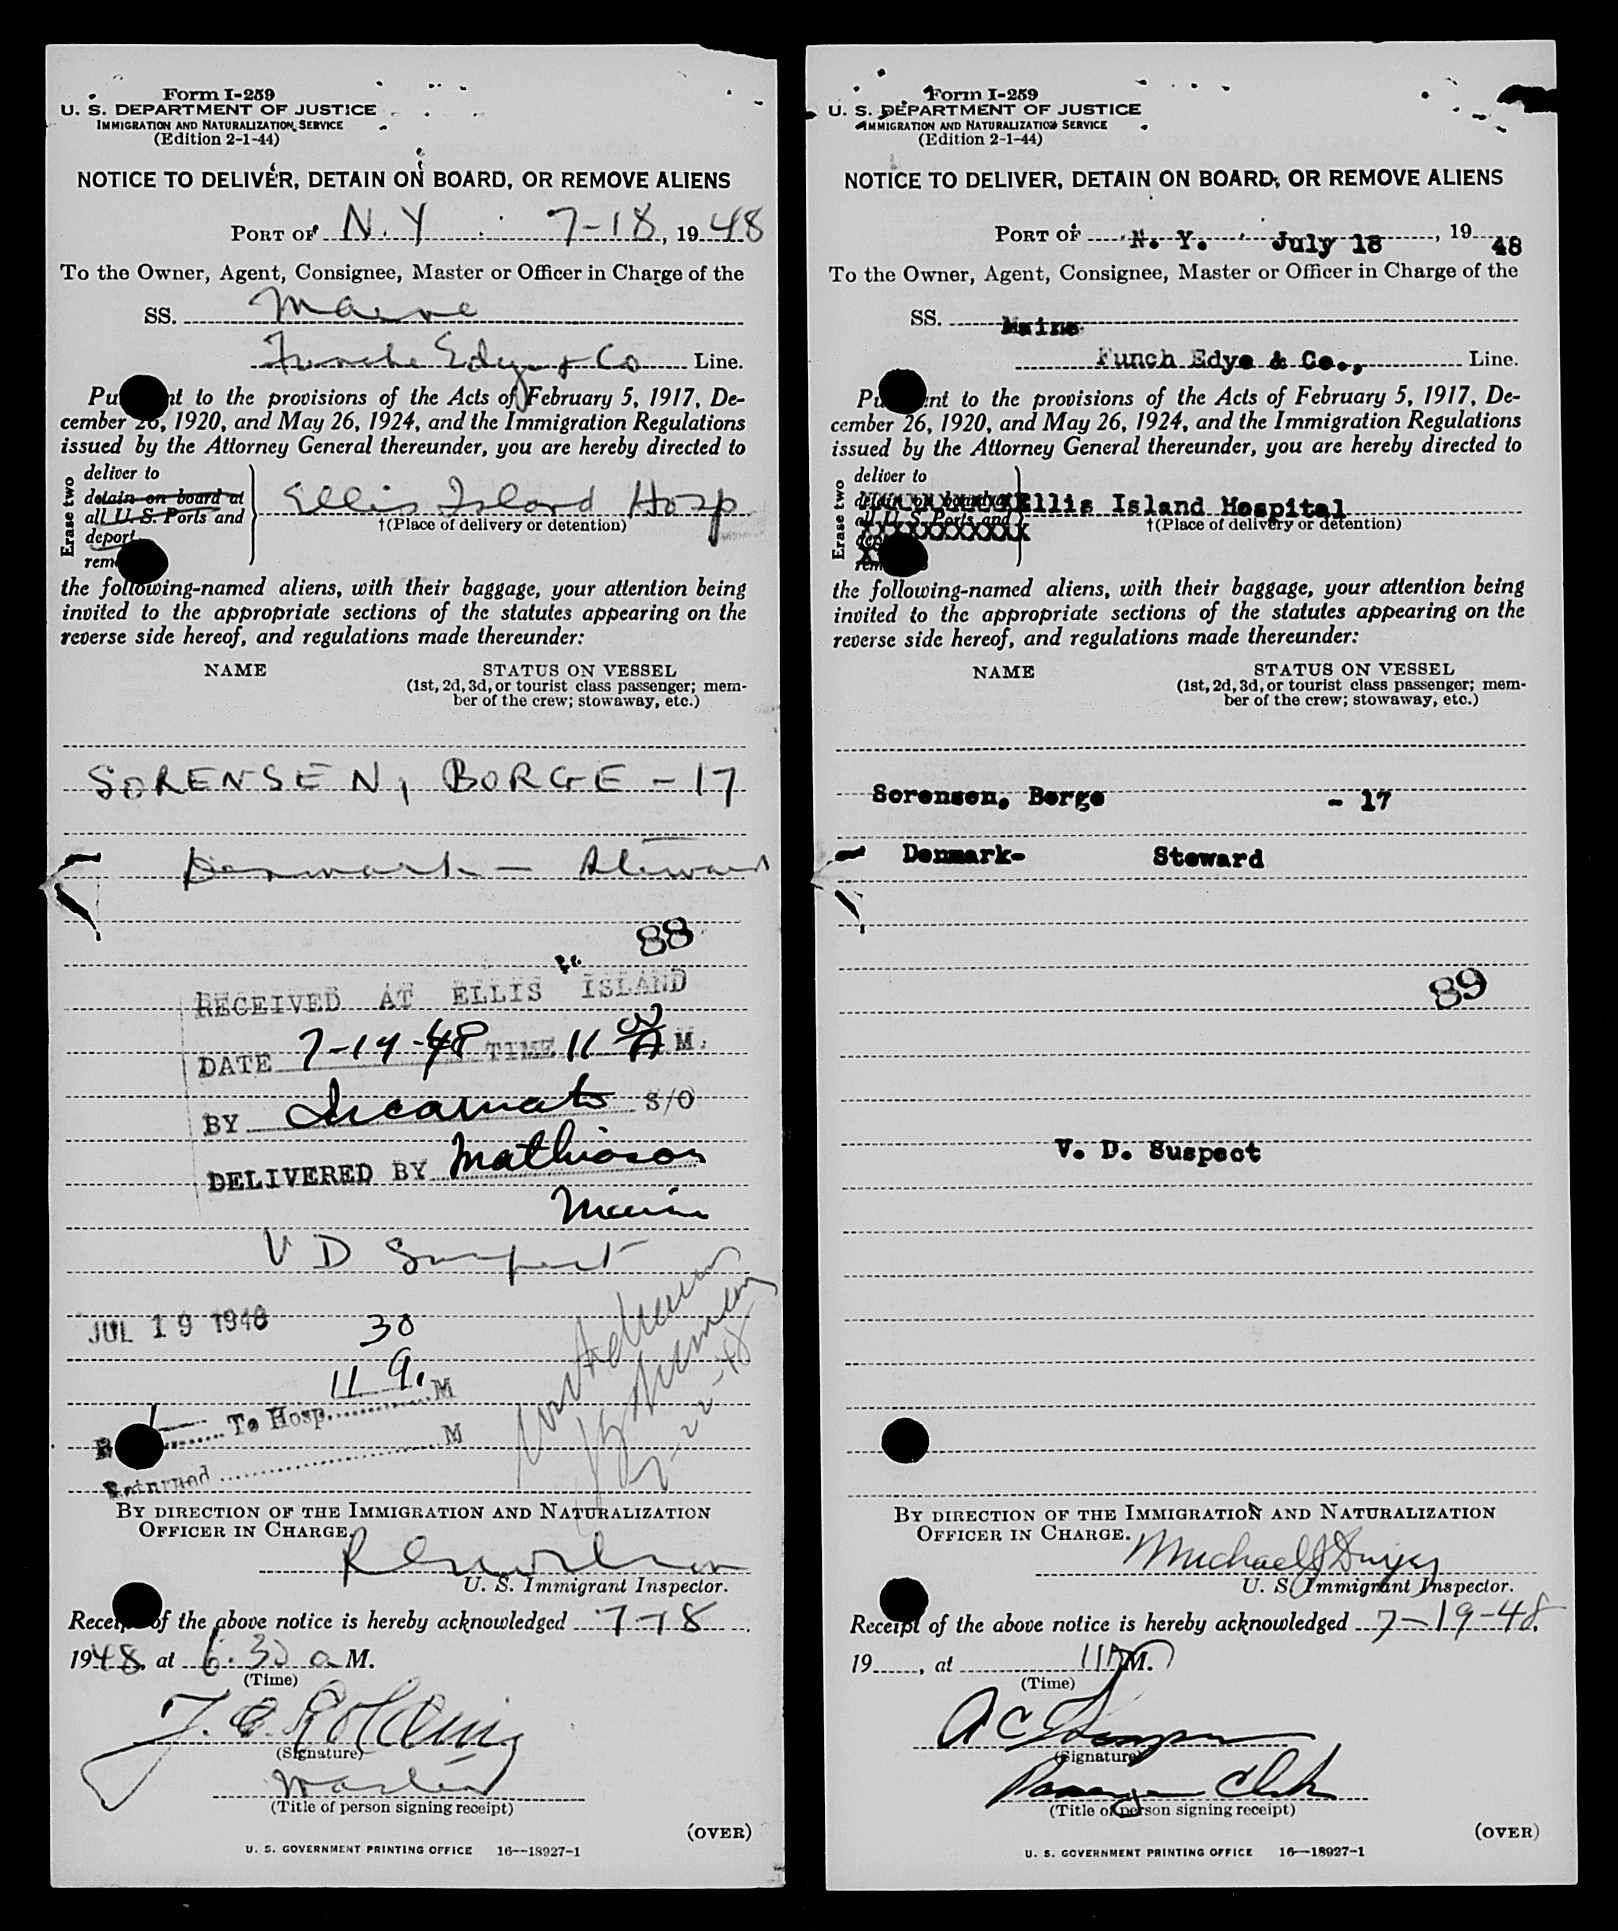 Form I-259
U. S. DEPARTMENT OF JUSTICE
IMMIGRATION AND NATURALIZATION SERVICE
(Edition 2-1-44)
NOTICE TO DELIVER, DETAIN ON BOARD, OR REMOVE ALIENS
PORT OF N.Y 7-18, 1948
To the Owner, Agent, Consignee, Master or Officer in Charge of the
SS. Maine
Funch Edye & Co Line.
to the provisions of the Acts of February 5, 1917, De-
cember 26, 1920, and May 26, 1924, and the Immigration Regulations
issued by the Attorney General thereunder, you are hereby directed to
Erase two
deliver to
detain on board at
all U.S. Ports and
deport
Ellis Island Hosp
†(Place of delivery or detention)
the following-named aliens, with their baggage, your attention being
invited to the appropriate sections of the statutes appearing on the
reverse side hereof, and regulations made thereunder:
NAME STATUS ON VESSEL
(1st, 2d, 3d, or tourist class passenger; mem-
ber of the crew; stowaway, etc.)
SORENSEN, BORGE - 17
Denmark - Steward
88
RECEIVED AT ELLIS ISLAND
DATE 7-19-48 TIME 11 00 A M.
BY Incarnato S/O
DELIVERED BY Mathiason
V D Suspect
JUL 19 1948
30
11 a. M
To Hosp. M
Returned
7-22-48
BY DIRECTION OF THE IMMIGRATION AND NATURALIZATION
OFFICER IN CHARGE.
U. S. Immigrant Inspector.
Receipt of the above notice is hereby acknowledged 7-18
1948, at 6:30 a M.
(Time)
(Signature)
Master
(Title of person signing receipt)
(OVER)
U. S. GOVERNMENT PRINTING OFFICE 16—18927-1
Form I-259
U. S. DEPARTMENT OF JUSTICE
IMMIGRATION AND NATURALIZATION SERVICE
(Edition 2-1-44)
NOTICE TO DELIVER, DETAIN ON BOARD, OR REMOVE ALIENS
PORT OF N. Y. July 18, 1948
To the Owner, Agent, Consignee, Master or Officer in Charge of the
SS. Maine
Funch Edye & Co., Line.
to the provisions of the Acts of February 5, 1917, De-
cember 26, 1920, and May 26, 1924, and the Immigration Regulations
issued by the Attorney General thereunder, you are hereby directed to
Erase two
deliver to
detain on board at
all U.S. Ports and
Ellis Island Hospital
†(Place of delivery or detention)
the following-named aliens, with their baggage, your attention being
invited to the appropriate sections of the statutes appearing on the
reverse side hereof, and regulations made thereunder:
NAME STATUS ON VESSEL
(1st, 2d, 3d, or tourist class passenger; mem-
ber of the crew; stowaway, etc.)
Sorensen, Borge - 17
Denmark- Steward
89
V. D. Suspect
BY DIRECTION OF THE IMMIGRATION AND NATURALIZATION
OFFICER IN CHARGE.
Michael J Dwyer
U. S. Immigrant Inspector.
Receipt of the above notice is hereby acknowledged 7-19-48,
19, at 11A M.
(Time)
(Signature)
Passenger Clerk
(Title of person signing receipt)
(OVER)
U. S. GOVERNMENT PRINTING OFFICE 16—18927-1